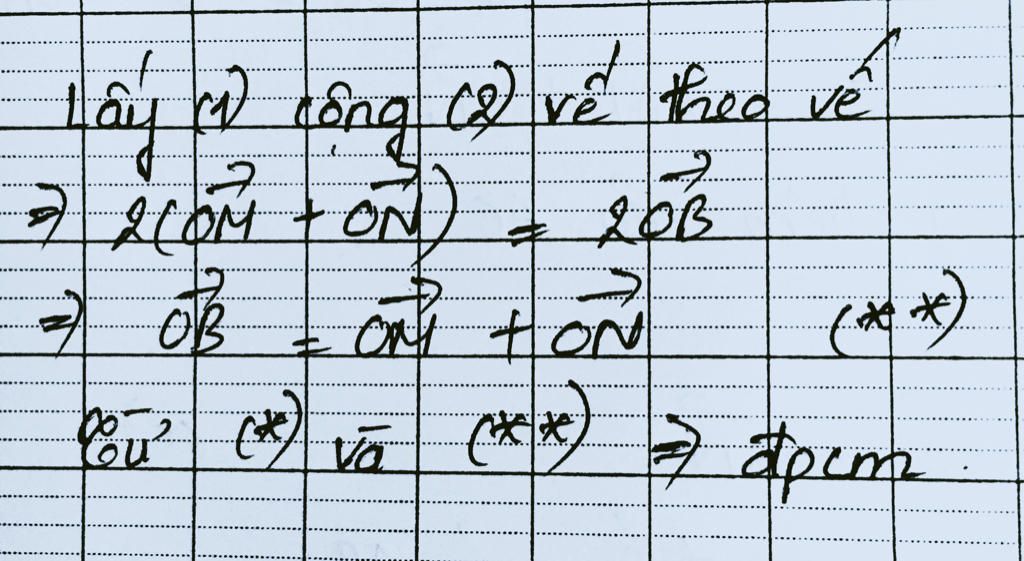 Lấy (1) cộng (2) vế theo vế
⇒ 2(\overrightarrow{OM} + \overrightarrow{ON}) = 2\overrightarrow{OB}
⇒ \overrightarrow{OB} = \overrightarrow{OM} + \overrightarrow{ON} (**)
Từ (*) và (**) ⇒ đpcm.